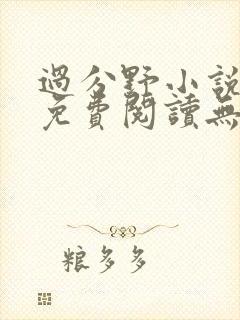 過分野小說
免費閱讀無
粮多多